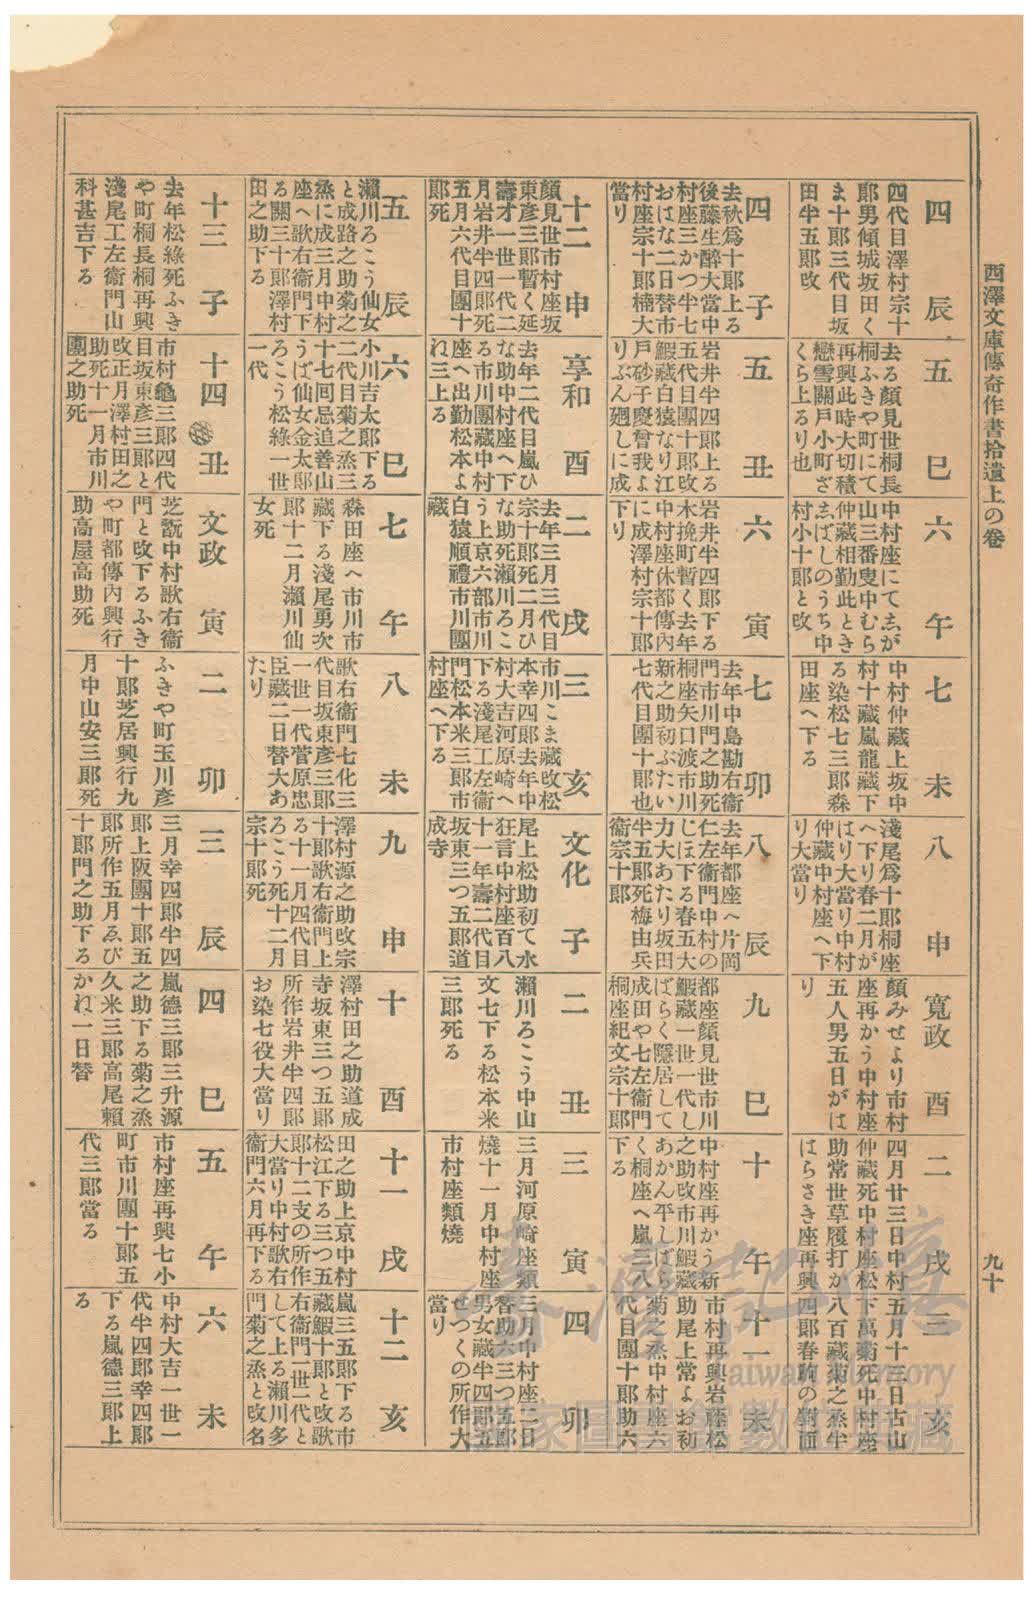 西澤文庫傳奇作書拾遺上の卷
九十
四 辰
四代目澤村宗十
郎男傾城坂田く
ま十郎三代目坂
田半五郎改
五 巳
去る顔見世桐長
桐ふきや町にて
再興此時大切積
戀雪關戸小町ざ
くら上るり也
六 午
中村座にて志が
山三番叟中むら
仲藏相勤此とき
志ばしのうち中
村小十郎と改
七 未
中村仲藏上坂中
村十藏嵐龍藏下
る染松七三郎森
田座へ下る
八 申
淺尾爲十郎桐座
へ下り春二月が
はり大當り中村
仲藏中村座へ下
り大當り
寛政 酉
顔みせより市村
座再かう中村座
五人男五日がは
り
二 戌
四月廿三日中村
仲藏死中村座松
助常世草履打か
はらさき座再興
三 亥
五月十三日古山
下萬菊死中村座
八百藏菊之烝半
四郎春駒の對面
四 子
去秋爲十郎上る
後藤生醉大當中
村座三かつ半七
おはな二日替市
村座宗十郎楠大
當り
五 丑
岩井半四郎上る
五代目團十郎改
鰕藏白猿なり江
戸砂子慶曾我よ
りぶん廻しに成
六 寅
岩井半四郎下る
木挽町暫く去年
中村座休都傳内
に成澤村宗十郎
下り
七 卯
去年中島勘右衞
門市川門之助死
桐座矢口渡市川
新之助初ぶたい
七代目團十郎也
八 辰
去年都座へ片岡
仁左衞門中村の
しほ下る春五大
力大あたり坂田
半五郎死梅由兵
衞宗十郎
九 巳
都座顔見世市川
鰕藏一世一代し
ばらく隱居して
成田や七左衞門
桐座紀文宗十郎
十 午
中村座再かう新
之助改市川鰕藏
あかん平しばら
く桐座へ嵐三八
下る
十一 未
市村再興岩藤松
助尾上常よお初
菊之烝中村座六
代目團十郎助六
十二 申
顔見世市村座坂
東彦三郎暫く延
壽才一世一代二
月岩井半四郎死
五月六代目團十
郎死
享和 酉
去年二代目嵐ひ
な助中村座へ下
る市川團藏中村
座へ出勤松本よ
ね三上る
二 戌
去年三月三代目
宗十郎死二月ひ
な助死瀬川ろこ
う上京六部市川
白猿順禮市川團
藏
三 亥
市川こま藏改松
本幸四郎去年中
村大吉河原崎へ
下る淺尾工左衞
門松本米三郎市
村座へ下る
文化 子
尾上松助初て水
狂言中村座百八
十一年壽二代目
坂東三つ五郎道
成寺
二 丑
瀬川ろこう中山
文七下る松本米
三郎死る
三 寅
三月河原崎座類
燒十一月中村座
市村座類燒
四 卯
三月中村座二日
替助六三つ五郎
男女藏半四郎五
せつくの所作大
當り
五 辰
瀬川ろこう仙女
と成路之助菊之
烝に成三月中村
座へ歌右衞門下
る關三十郎澤村
田之助下る
六 巳
小川吉太郎下る
二代目菊之烝三
十七囘忌追善山
うば仙女金太郎
ろこう松綠一世
一代
七 午
森田座へ市川市
藏下る淺尾勇次
郎十二月瀬川仙
女死
八 未
歌右衞門七化三
代目坂東彦三郎
一世一代菅原忠
臣藏二日替大あ
たり
九 申
澤村源之助改宗
十郎歌右衞門上
る十一月四代目
ろこう死十二月
宗十郎死
十 酉
澤村田之助道成
寺坂東三つ五郎
所作岩井半四郎
お染七役大當り
十一 戌
田之助上京中村
松江下る三つ五
郎十二支の所作
大當り中村歌右
衞門六月再下る
十二 亥
嵐三五郎下る市
藏鰕十郎と改歌
右衞門一世一代と
して上る瀬川多
門菊之烝と改名
十三 子
去年松綠死ふき
や町桐長桐再興
淺尾工左衞門山
科甚吉下る
十四 丑
市村龜三郎四代
目坂東彦三郎と
改正月澤村田之
助死十一月市川
團之助死
文政 寅
芝翫中村歌右衞
門と改下るふき
や町都傳内興行
助高屋高助死
二 卯
ふきや町玉川彦
十郎芝居興行九
月中山安三郎死
三 辰
三月幸四郎半四
郎上阪團十郎五
郎所作五月ゑび
十郎門之助下る
四 巳
嵐德三郎三升源
之助下る菊之烝
久米三郎高尾頼
かね一日替
五 午
市村座再興七小
町市川團十郎五
代三郎當る
六 未
中村大吉一世一
代半四郎幸四郎
下る嵐德三郎上
る
臺灣記憶
Taiwan Memory
國家圖書館數位典藏